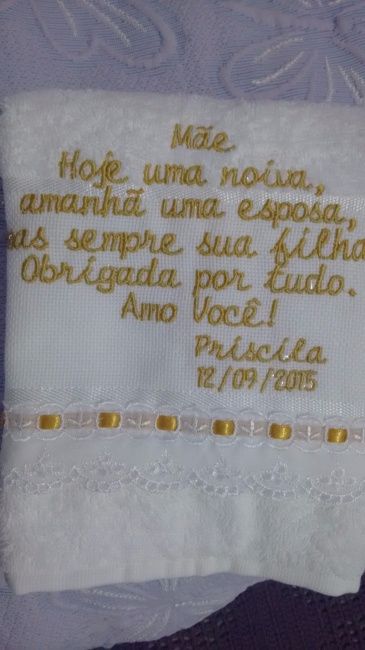 Mãe
Hoje uma noiva,
amanhã uma esposa,
mas sempre sua filha
Obrigada por tudo.
Amo Você!
Priscila
12/09/2015